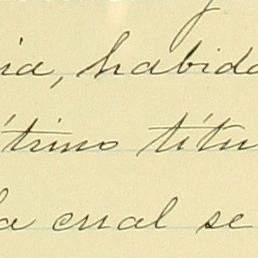 ia, habida
ítimo títu
la cual se